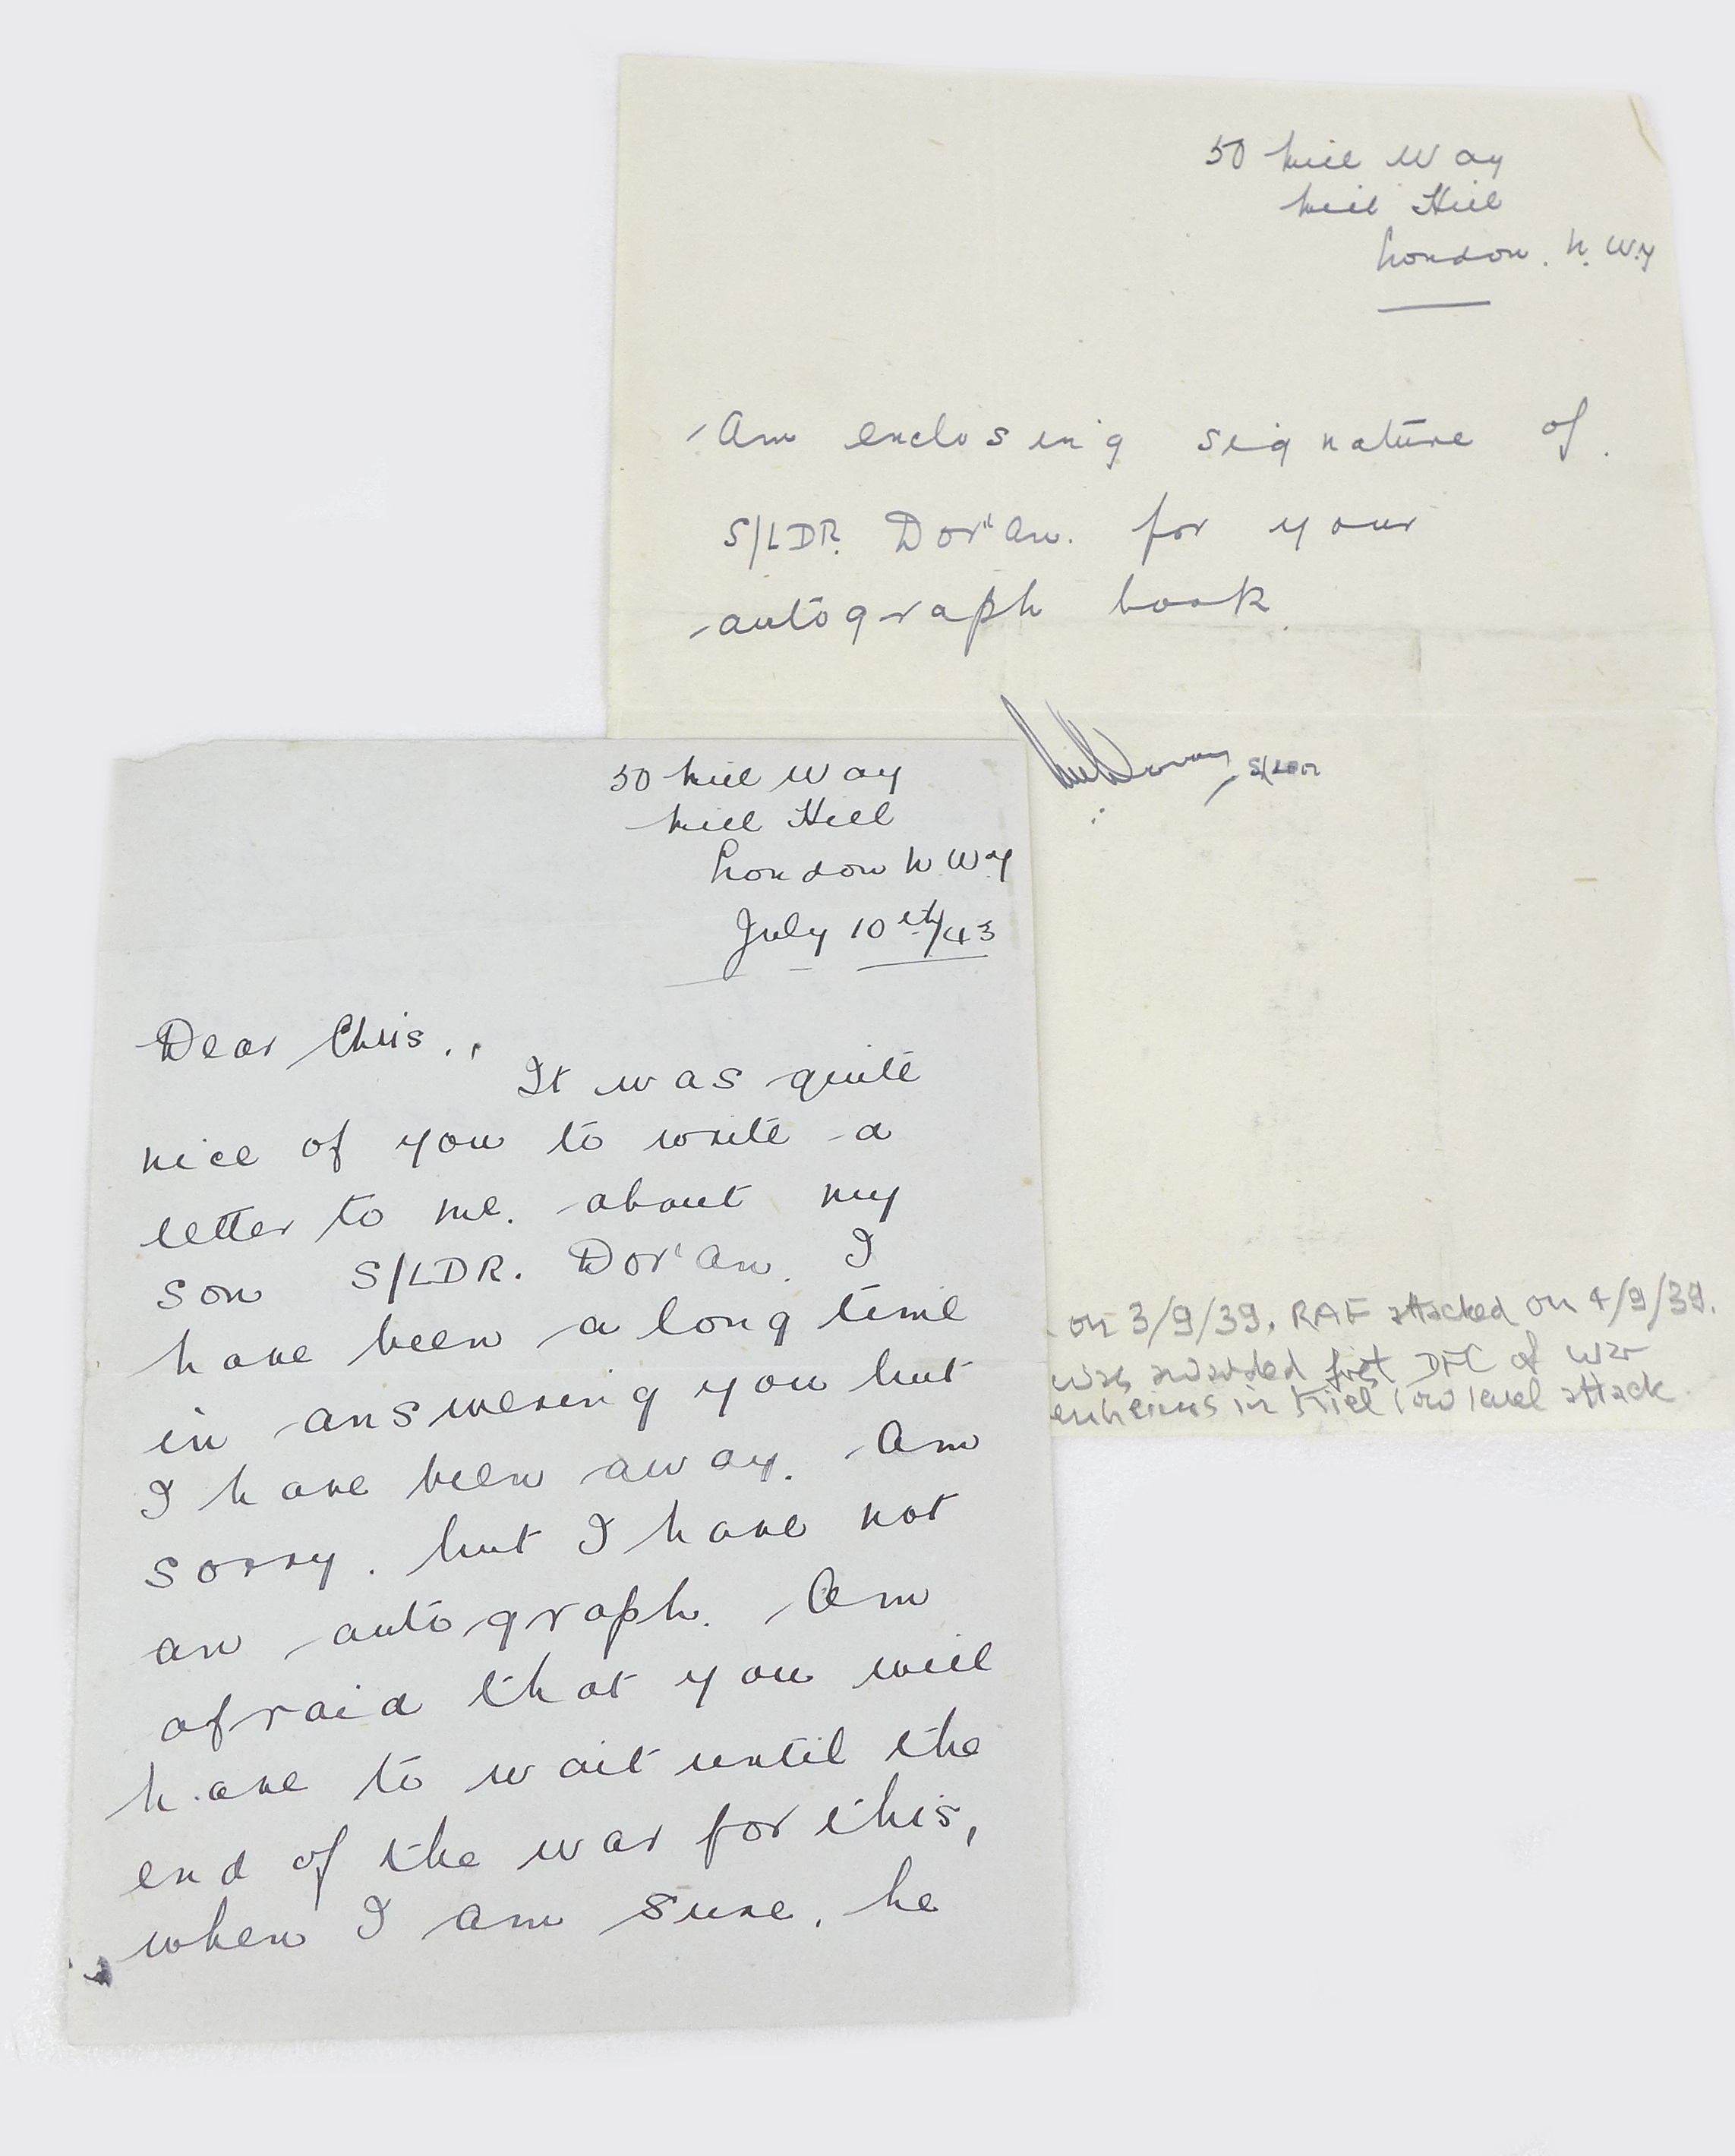 50 Mill Way
Mill Hill
London. N. W.7
Am enclosing signature of
S/LDR. Dor'an. for your
autograph book.
Doran S/LDR
on 3/9/39. RAF attacked on 4/9/39.
was awarded first DFC of war
in Kiel low level attack
50 Mill Way
Mill Hill
London N.W.7
July 10th/43
Dear Chris.,
It was quite
nice of you to write a
letter to me. about my
son S/LDR. Dor'an. I
have been a long time
in answering you but
I have been away. Am
sorry. but I have not
an autograph. Am
afraid that you will
have to wait until the
end of the war for this,
when I am sure. he